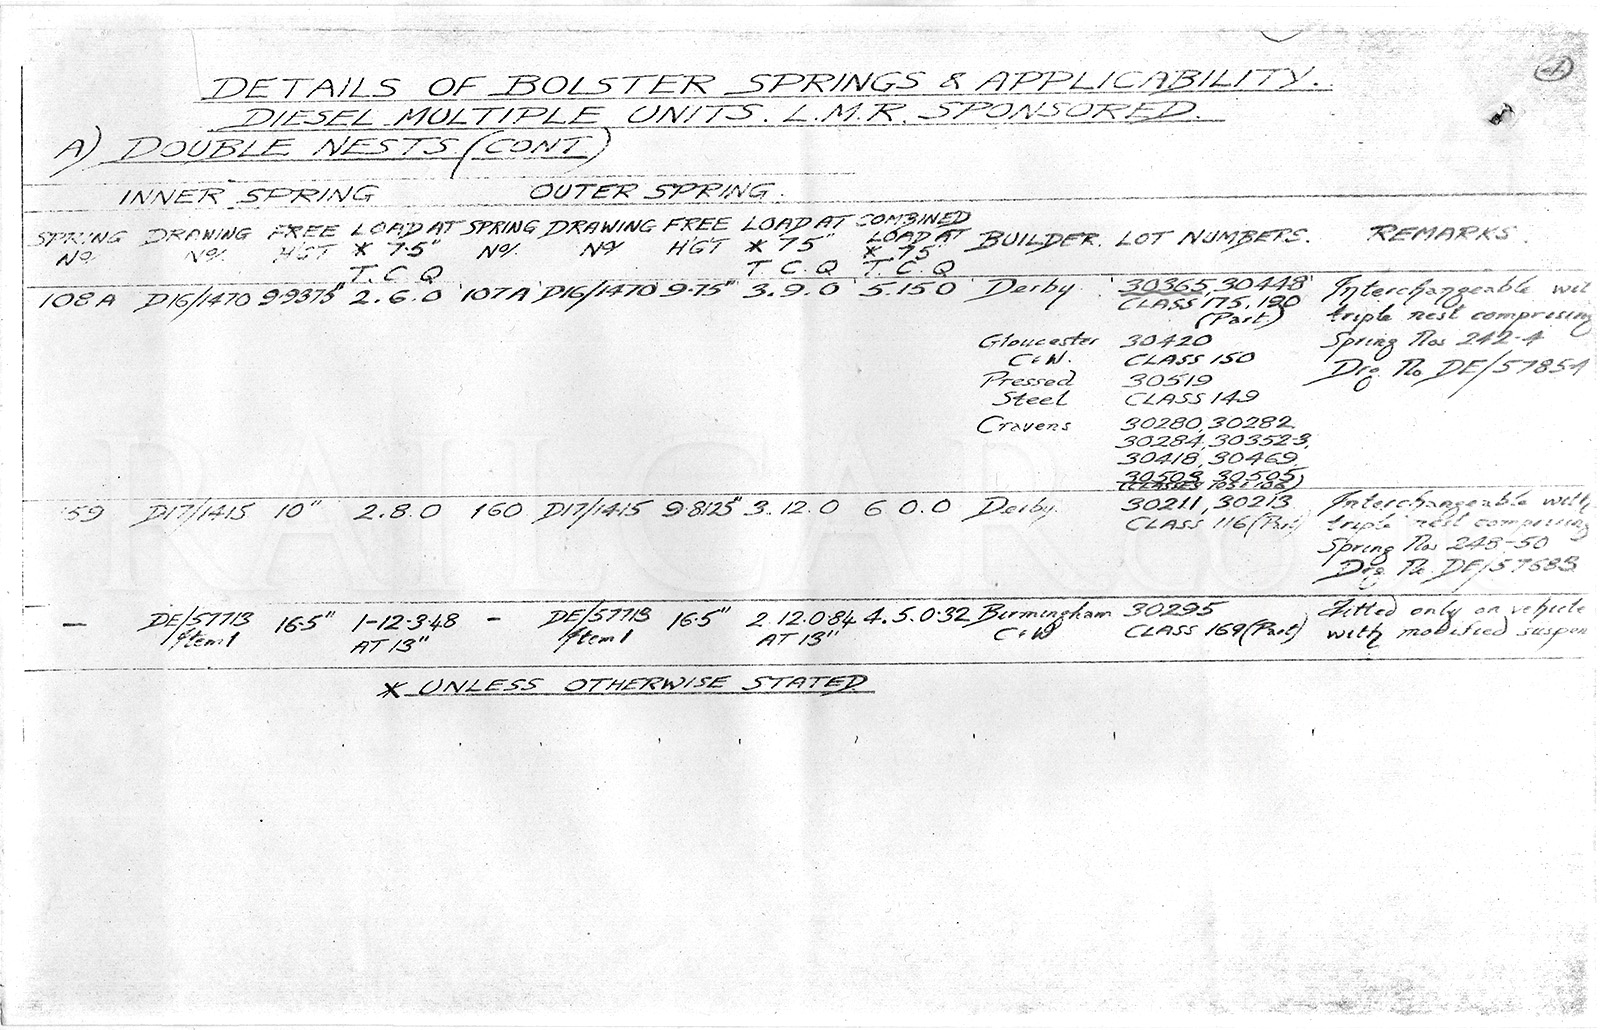 DETAILS OF BOLSTER SPRINGS & APPLICABILITY.
DIESEL MULTIPLE UNITS. L.M.R. SPONSORED.
A) DOUBLE NESTS (CONT.)
INNER SPRING OUTER SPRING.
SPRING DRAWING FREE LOAD AT SPRING DRAWING FREE LOAD AT COMBINED BUILDER. LOT NUMBERS. REMARKS.
No. No. HGT * 7.5" No. No. HGT * 7.5" LOAD AT
* 7.5"
T. C. Q T. C. Q T. C. Q
108A D16/1470 9.9375" 2.6.0 107A D16/1470 9.75" 3.9.0 5.15.0 Derby. 30365, 30448 Interchangeable wit
CLASS 175, 190 triple nest comprising
(Part) Spring Nos 242-4
Gloucester 30420 Drg. No DE/57854
C&W. CLASS 150
Pressed 30519
Steel CLASS 149
Cravens 30280, 30282
30284, 30352-3,
30418, 30469
30503, 30505
159 D17/1415 10" 2.8.0 160 D17/1415 9.8125" 3.12.0 6 0.0 Derby. 30211, 30213 Interchangeable with
CLASS 116 (Part) triple nest comprising
Spring Nos 248-50
Drg. No. DE/57683
— DE/57713 16.5" 1-12-3.48 — DE/57713 16.5" 2.12.0.84 4.5.0.32 Birmingham 30295 Fitted only on vehicle
Item 1 AT 13" Item 1 AT 13" C&W CLASS 169 (Part) with modified suspen
* UNLESS OTHERWISE STATED
RAILCAR.CO